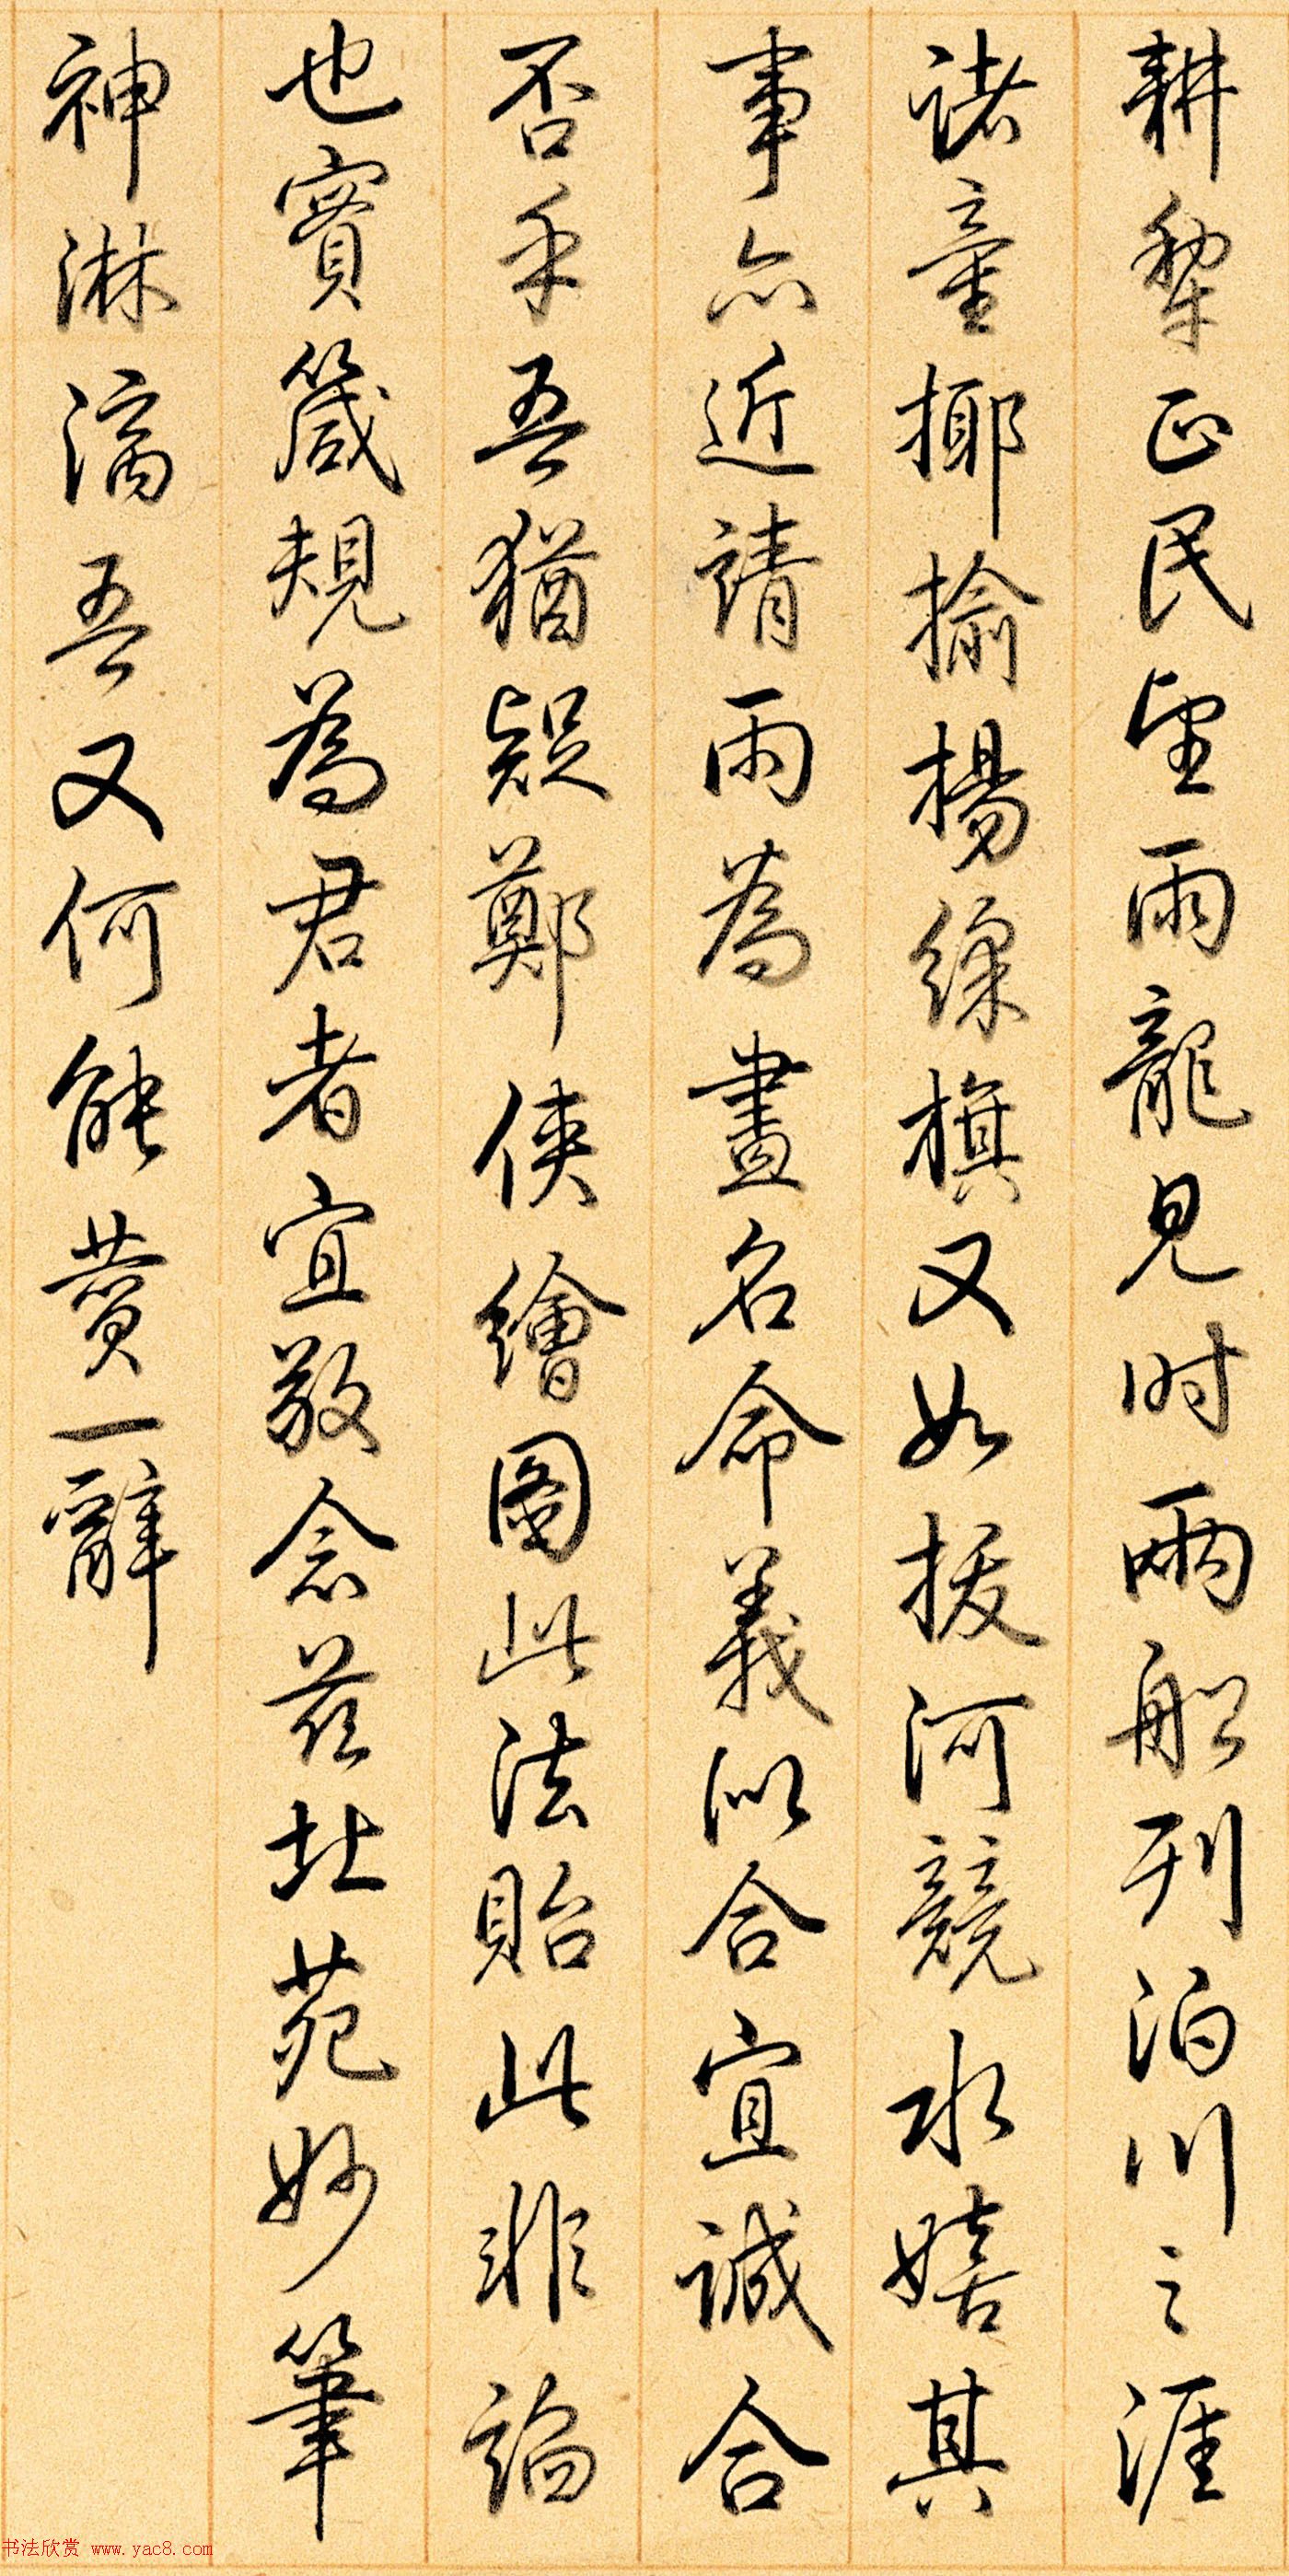 耕犁正民望雨龍見时兩船列泊川之涯
诸童揶揄楊綵旗又如拔河競水嬉其
事亦近请雨為畫名命義似合宜诚合
否乎吾猶疑鄭俠繪圖此法貽此非論
也實箴規為君者宜敬念兹北苑妙筆
神淋漓吾又何能贊一辭
书法欣赏 www.yac8.com